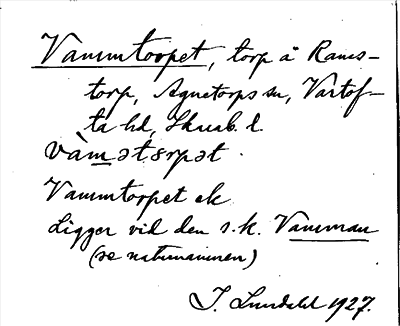 Vammtorpet, torp å Rams-
torp, Agnetorps sn, Vartof-
ta hd, Skarab. l.
vàmətɛrpət.
Vammtorpet ek
Ligger vid den s.k. Vamman
(se naturnamnen)
J. Lundahl 1927.